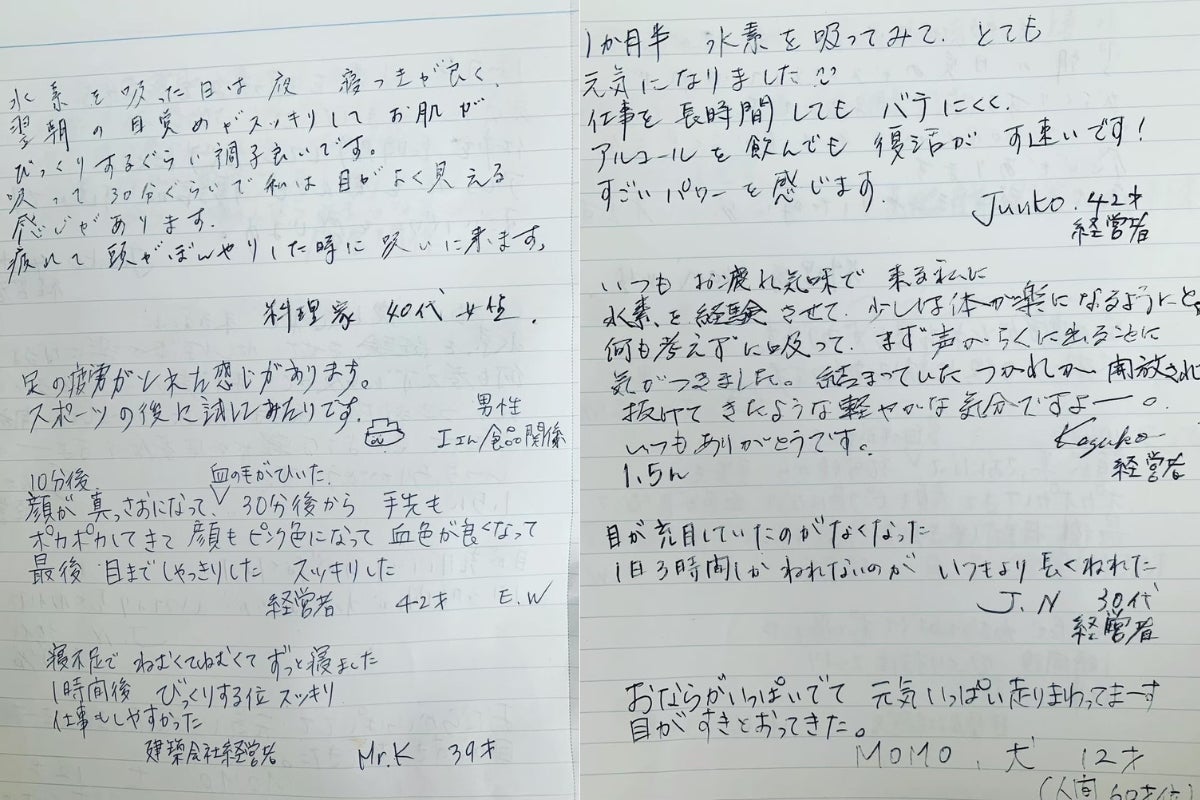 水素を吸った日は夜 寝つきが良く、
翌朝の目覚めがスッキリしてお肌が
びっくりするぐらい調子良いです。
吸って30分ぐらいで私は目がよく見える
感じがあります。
疲れて頭がぼんやりした時に吸いに来ます。
料理家 40代 女性.
足の疲労がとれた感じがあります。
スポーツの後に試してみたいです。
男性
工エム/食品関係
10分後 血の毛がひいた.
顔が真っさおになって、30分後から 手先も
ポカポカしてきて 顔もピンク色になって 血色が良くなって
最後 目までしゃっきりした スッキリした
経営者 42才 E.W
寝不足で ねむくてねむくて ずっと寝ました
1時間後 びっくりする位 スッキリ
仕事もしやすかった
建築会社経営者 Mr.K 39才
1か月半 水素を吸ってみて、とても
元気になりました
仕事を長時間しても バテにくく、
アルコールを飲んでも 復活が す速いです!
すごいパワーを感じます.
Junko. 42才
経営者
いつも お疲れ気味で 来る私に
水素を経験させて、少しは体が楽になるようにと
何も考えずに吸って、まず声がらくに出ることに
気がつきました。結まっていた つかれが 開放され
抜けて きたような 軽やかな 気分ですよー。
いつもありがとうです。
Kazuko
1.5h
経営者
目が充目していたのがなくなった
1日3時間しか ねれないのが いつもより 長くねれた
J.N 30代
経営者
おならがいっぱいでて 元気いっぱい走りまわってまーす
目がすきとおってきた。
MOMO. 犬 12才
(人間 60才位)